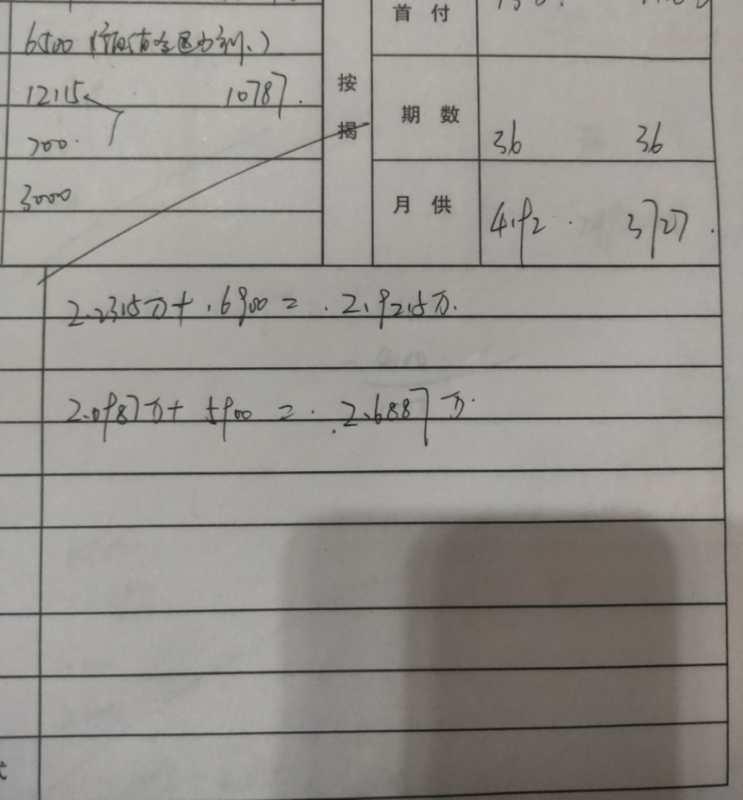 首付
6500(
12115 10787.
按揭
期数 36 36
700.
3000
月供 4192. 3727.
2.2315万+.6900=.2.9215万.
2.0987万+5900=.2.6887万.